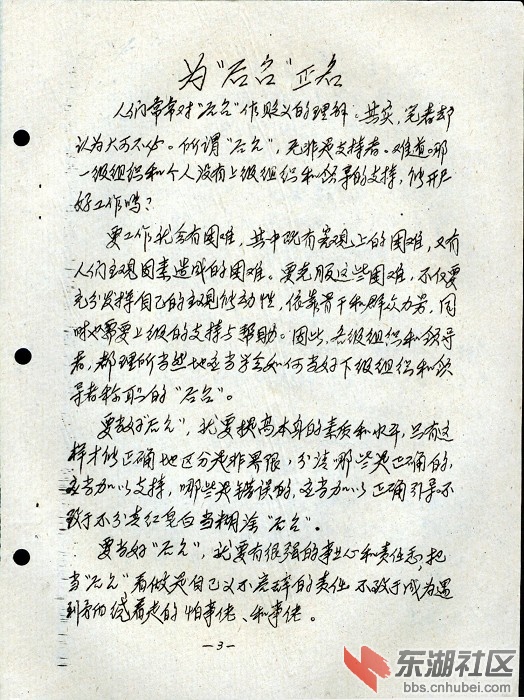 为“后台”正名
人们常常对“后台”作贬义的理解。其实,笔者却
认为大可不必。所谓“后台”,无非是支持者。难道哪
一级组织和个人没有上级组织和领导的支持,能开展
好工作吗?
要工作就会有困难,其中既有客观上的困难,又有
人们主观因素造成的困难。要克服这些困难,不仅要
充分发挥自己的主观能动性,依靠骨干和群众力量,同
时也需要上级的支持与帮助。因此,各级组织和领导
者,都理所当然地应当学会如何当好下级组织和领
导者称职的“后台”。
要当好“后台”,就要提高本身的素质和水平,只有这
样才能正确地区分是非界限,分清哪些是正确的,
应当加以支持,哪些是错误的,应当加以正确引导不
致于不分青红皂白当糊涂“后台”。
要当好“后台”,就要有很强的事业心和责任感,把
当“后台”看做是自己义不容辞的责任,不致于成为遇
到矛盾绕着走的怕事佬、和事佬。
—3—
东湖社区
bbs.cnhubei.com